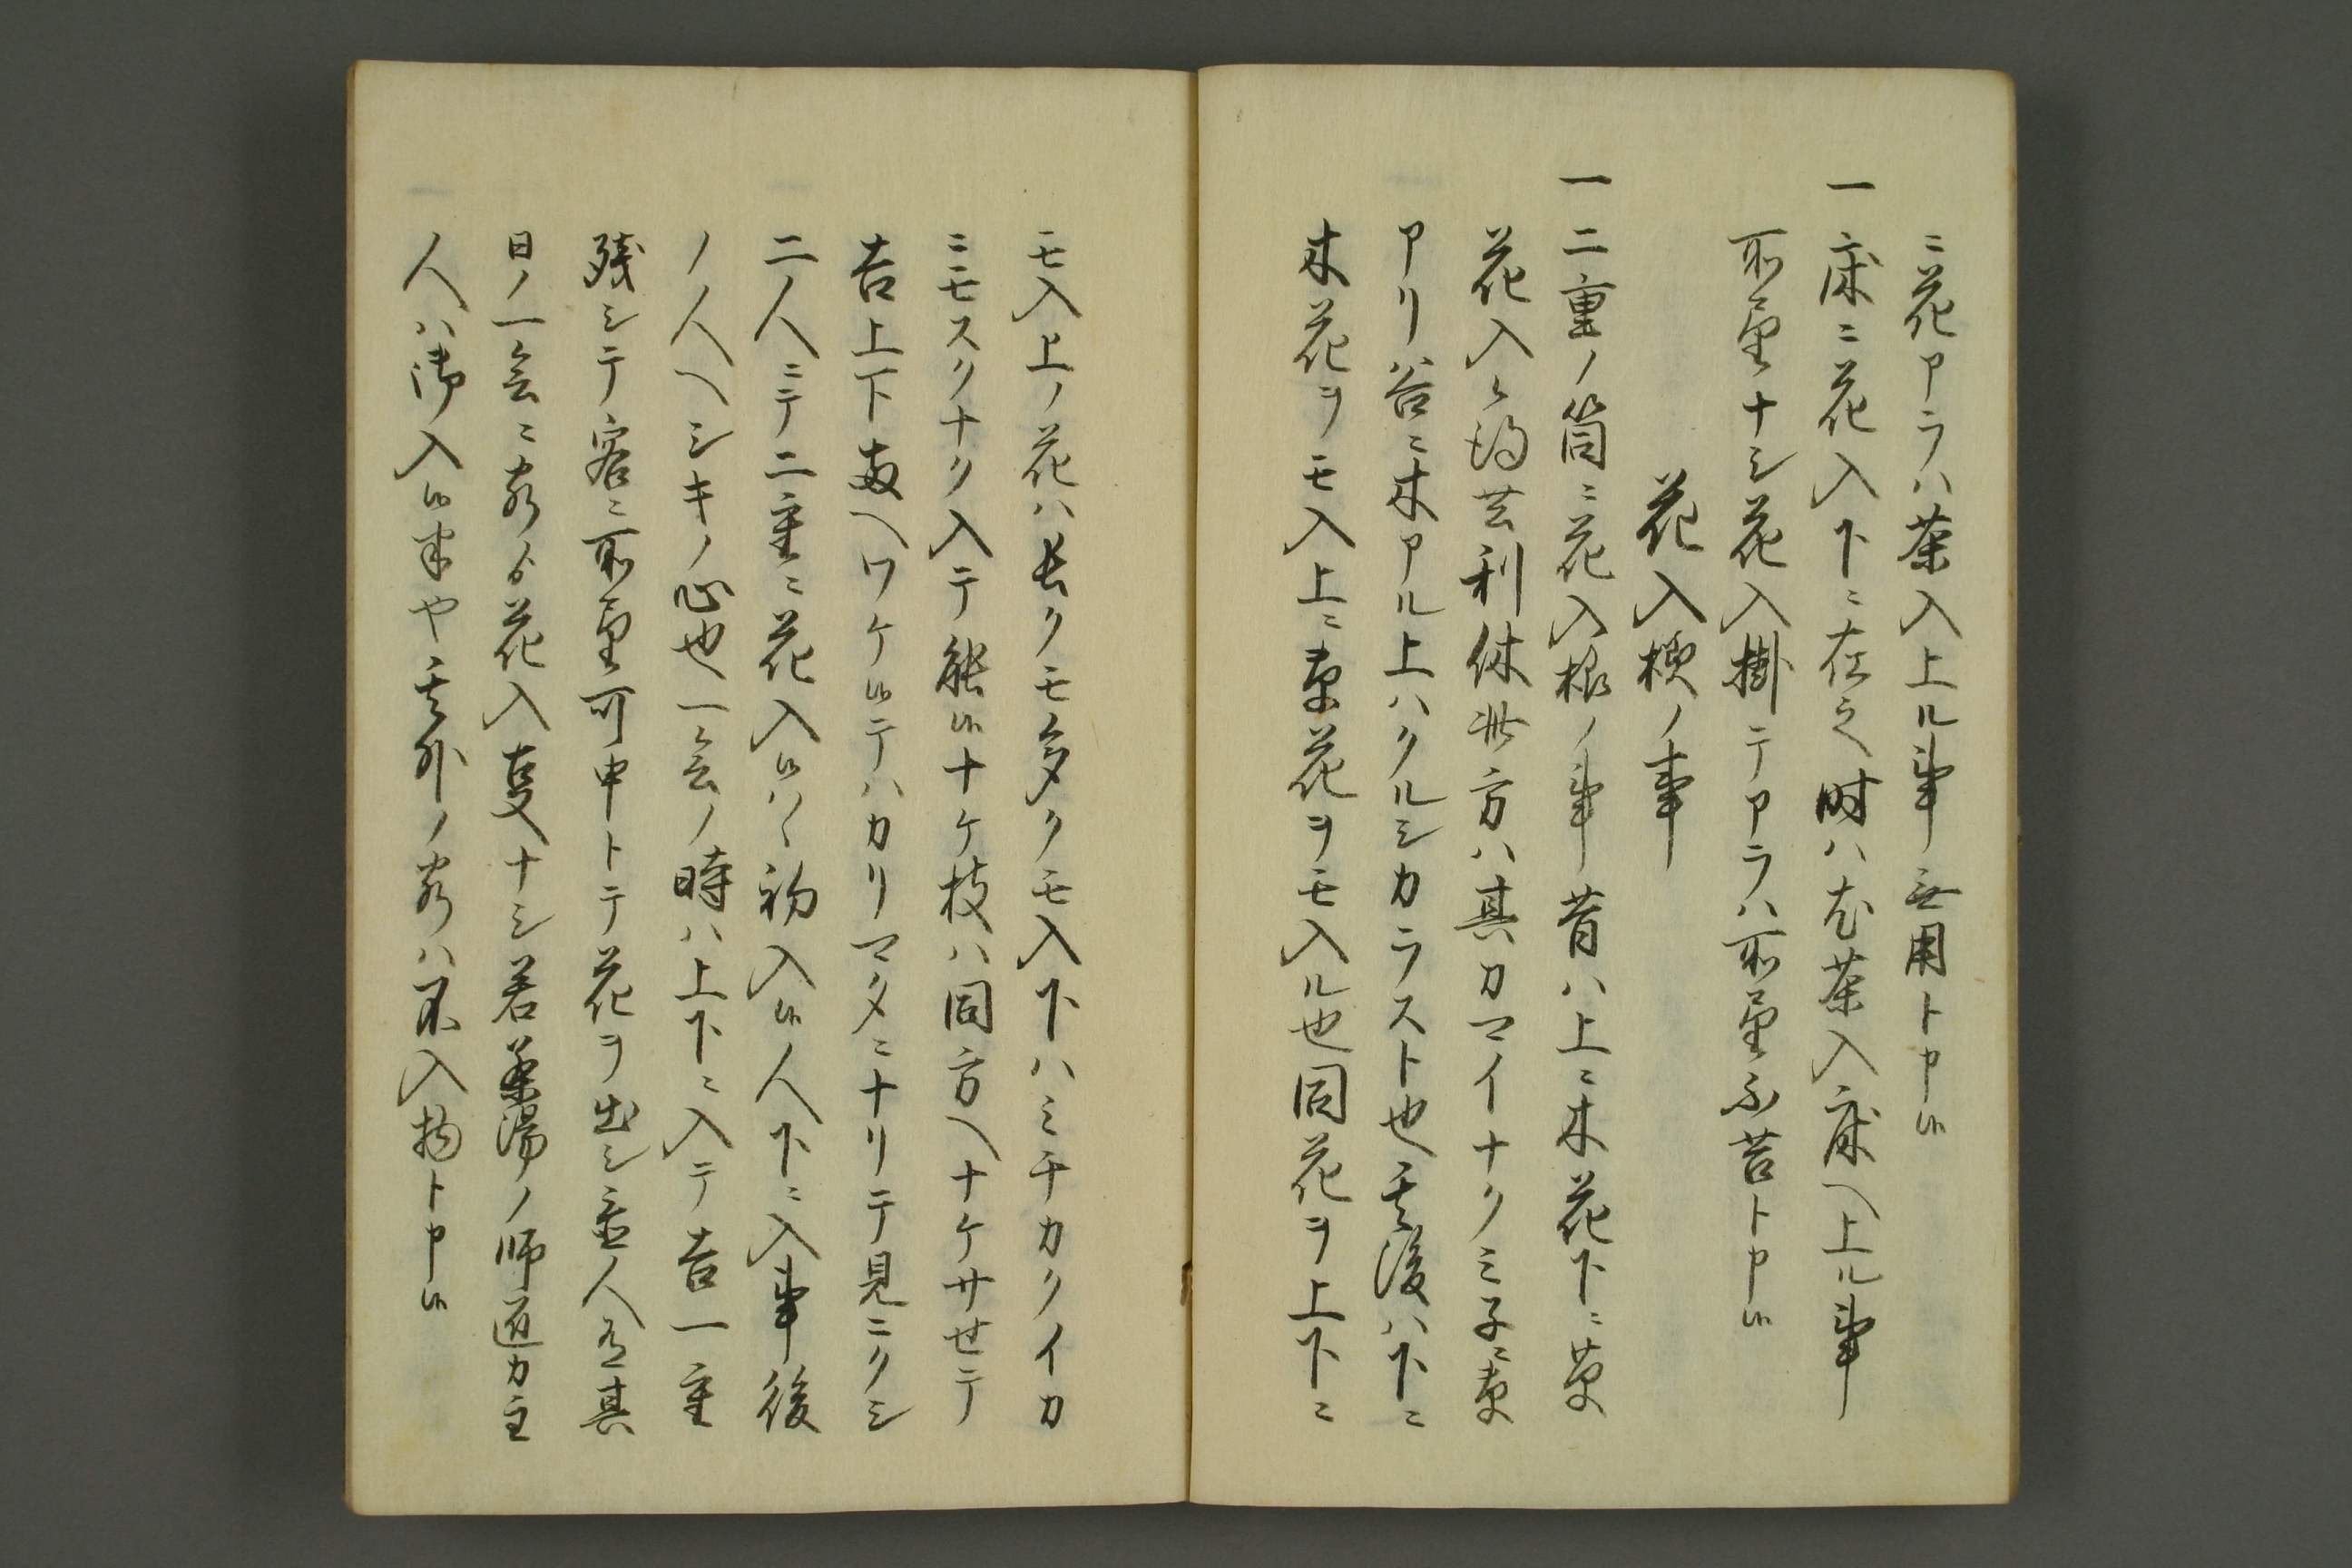 ニ花アラハ茶入上ル事無用ト申候
一 床ニ花入下ニ在之時ハ花茶入床ヘ上ル事
所望ナシ花入掛テアラハ所望不苦ト申候
花入様ノ事
一 二重ノ筒ニ花入様ノ事昔ハ上ニ木花下ニ草
花入候 利休此方ハ其カマイナクミ子ニ草
アリ谷ニ木アル上ハクルシカラスト也其後ハ下ニ
木花ヲモ入上ニ草花ヲモ入ル也同花ヲ上下ニ
モ入上ノ花ハ長クモ多クモ入下ハミチカクイカ
ニモスクナク入テ能候ナケ枝ハ同方ヘナケサセテ
吉上下両ヘワケ候テハカリマタニナリテ見ニクシ
二人ニテ二重ニ花入候ハヽ初入候人下ニ入事後
ノ人ヘシキノ心也一会ノ時ハ上下ニ入テ吉一重
残シテ客ニ所望可申トテ花ヲ出シ 人 其
日ノ一会ニ客ゟ花入 ナシ若茶湯ノ師匠カ主
人ハ御入候 ヤ其外ノ客ハ不入物ト申候